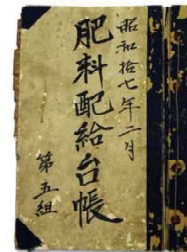 昭和拾七年二月
肥料配給台帳
第五組